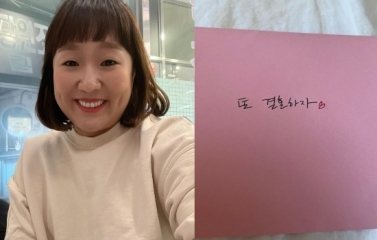 또 결혼하자